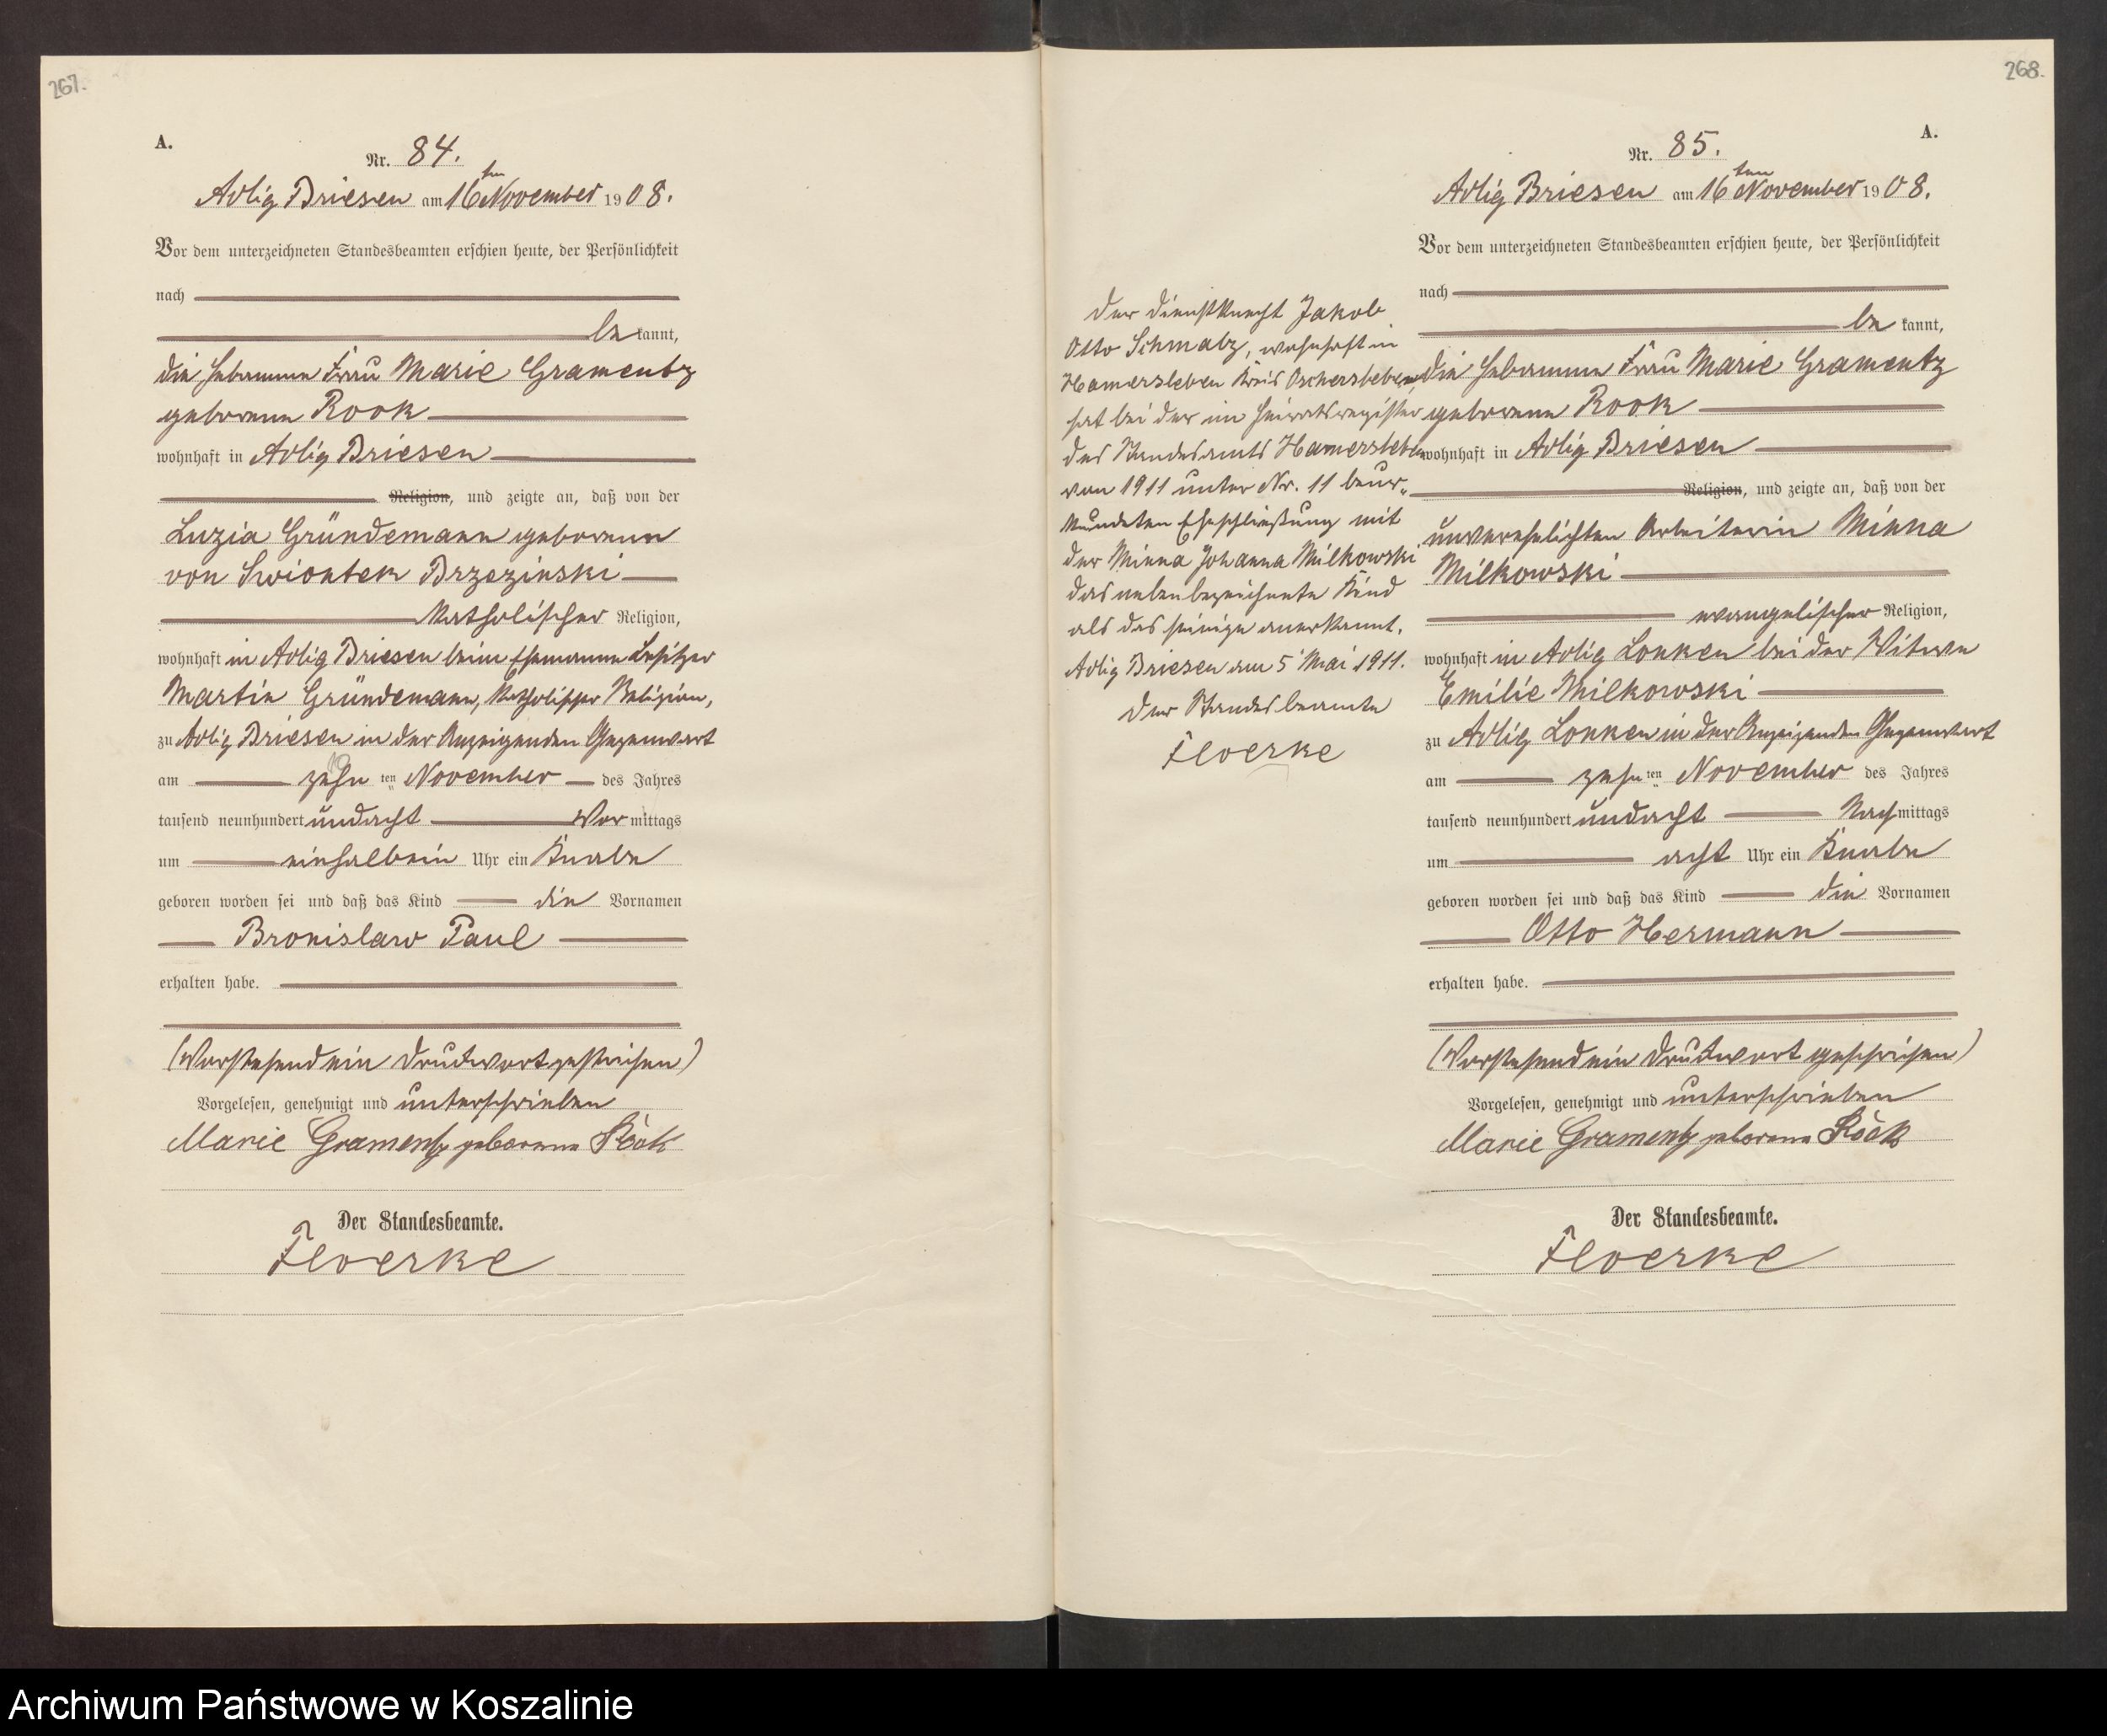 267.
A.
Nr. 84.
Adlig Briesen am 16ten November 1908.
Vor dem unterzeichneten Standesbeamten erschien heute, der Persönlichkeit
nach
be kannt,
die Hebamme Frau Marie Gramentz
geborene Rook
wohnhaft in Adlig Briesen
Religion, und zeigte an, daß von der
Luzia Gründemann geborenen
von Swiontek Brzezinski
katholischer Religion,
wohnhaft in Adlig Briesen beim Ehemanne Besitzer
Martin Gründemann, katholischer Religion,
zu Adlig Briesen in der Anzeigenden Gegenwart
am zehn ten November des Jahres
tausend neunhundert undacht Vor mittags
um einhalbein Uhr ein Knabe
geboren worden sei und daß das Kind die Vornamen
Bronislaw Paul
erhalten habe.
(Vorstehend ein Druckwort gestrichen)
Vorgelesen, genehmigt und unterschrieben
Marie Gramentz geborene Röök
Der Standesbeamte.
Floerke
268.
A.
Nr. 85.
Adlig Briesen am 16ten November 1908.
Vor dem unterzeichneten Standesbeamten erschien heute, der Persönlichkeit
nach
be kannt,
die Hebamme Frau Marie Gramentz
geborene Rook
wohnhaft in Adlig Briesen
Religion, und zeigte an, daß von der
unverehelichten Arbeiterin Minna
Milkowski
evangelischer Religion,
wohnhaft in Adlig Lonken bei der Witwe
Emilie Milkowski
zu Adlig Lonken in der Anzeigenden Gegenwart
am zehn ten November des Jahres
tausend neunhundert undacht Nach mittags
um acht Uhr ein Knabe
geboren worden sei und daß das Kind die Vornamen
Otto Hermann
erhalten habe.
(Vorstehend ein Druckwort gestrichen)
Vorgelesen, genehmigt und unterschrieben
Marie Gramentz geborene Röök
Der Standesbeamte.
Floerke
Der Dienstknecht Jakob
Otto Schmalz, wohnhaft in
Hamersleben Kreis Oschersleben,
hat bei der im Heiratsregister
des Standesamts Hamersleben
von 1911 unter Nr. 11 beur-
kundeten Eheschließung mit
der Minna Johanna Milkowski
das nebenbezeichnete Kind
als das seinige anerkannt.
Adlig Briesen am 5 Mai 1911.
Der Standesbeamte
Floerke
Archiwum Państwowe w Koszalinie